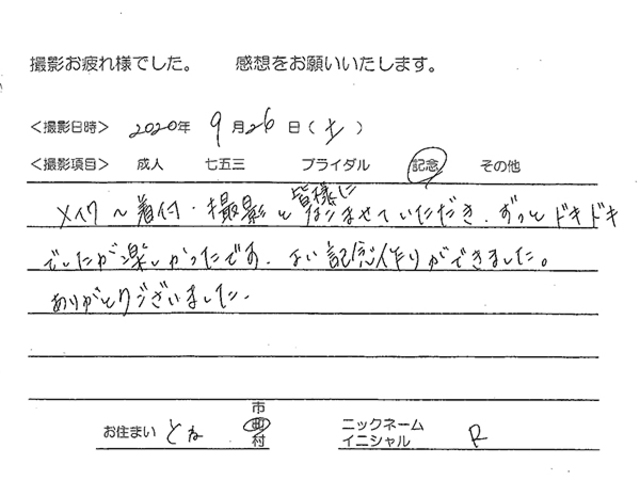 撮影お疲れ様でした。 感想をお願いいたします。
<撮影日時> 2020年 9月26日(土)
<撮影項目> 成人 七五三 ブライダル 記念 その他
皆様に
メイク～着付・撮影と ませていただき、ずっとドキドキ
でしたが楽しかったです。よい記念作りができました。
ありがとうございました。
市
お住まい とね 町 ニックネーム
村 イニシャル R